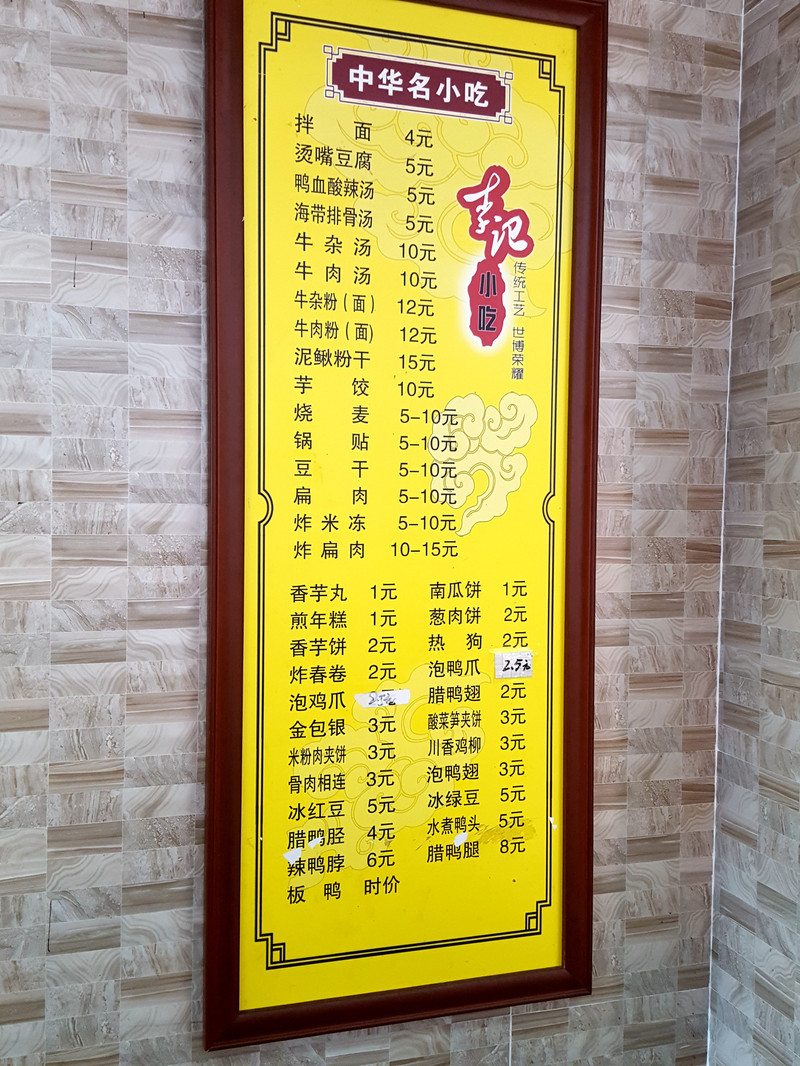 中华名小吃
拌 面 4元
烫嘴豆腐 5元
鸭血酸辣汤 5元
海带排骨汤 5元
牛杂汤 10元
牛肉汤 10元
牛杂粉(面) 12元
牛肉粉(面) 12元
泥鳅粉干 15元
芋 饺 10元
烧 麦 5-10元
锅 贴 5-10元
豆 干 5-10元
扁 肉 5-10元
炸米冻 5-10元
炸扁肉 10-15元
李记
小吃
传统工艺 世博荣耀
香芋丸 1元 南瓜饼 1元
煎年糕 1元 葱肉饼 2元
香芋饼 2元 热 狗 2元
炸春卷 2元 泡鸭爪 2.5元
泡鸡爪 2.5元 腊鸭翅 2元
金包银 3元 酸菜笋夹饼 3元
米粉肉夹饼 3元 川香鸡柳 3元
骨肉相连 3元 泡鸭翅 3元
冰红豆 5元 冰绿豆 5元
腊鸭胫 4元 水煮鸭头 5元
辣鸭脖 6元 腊鸭腿 8元
板 鸭 时价